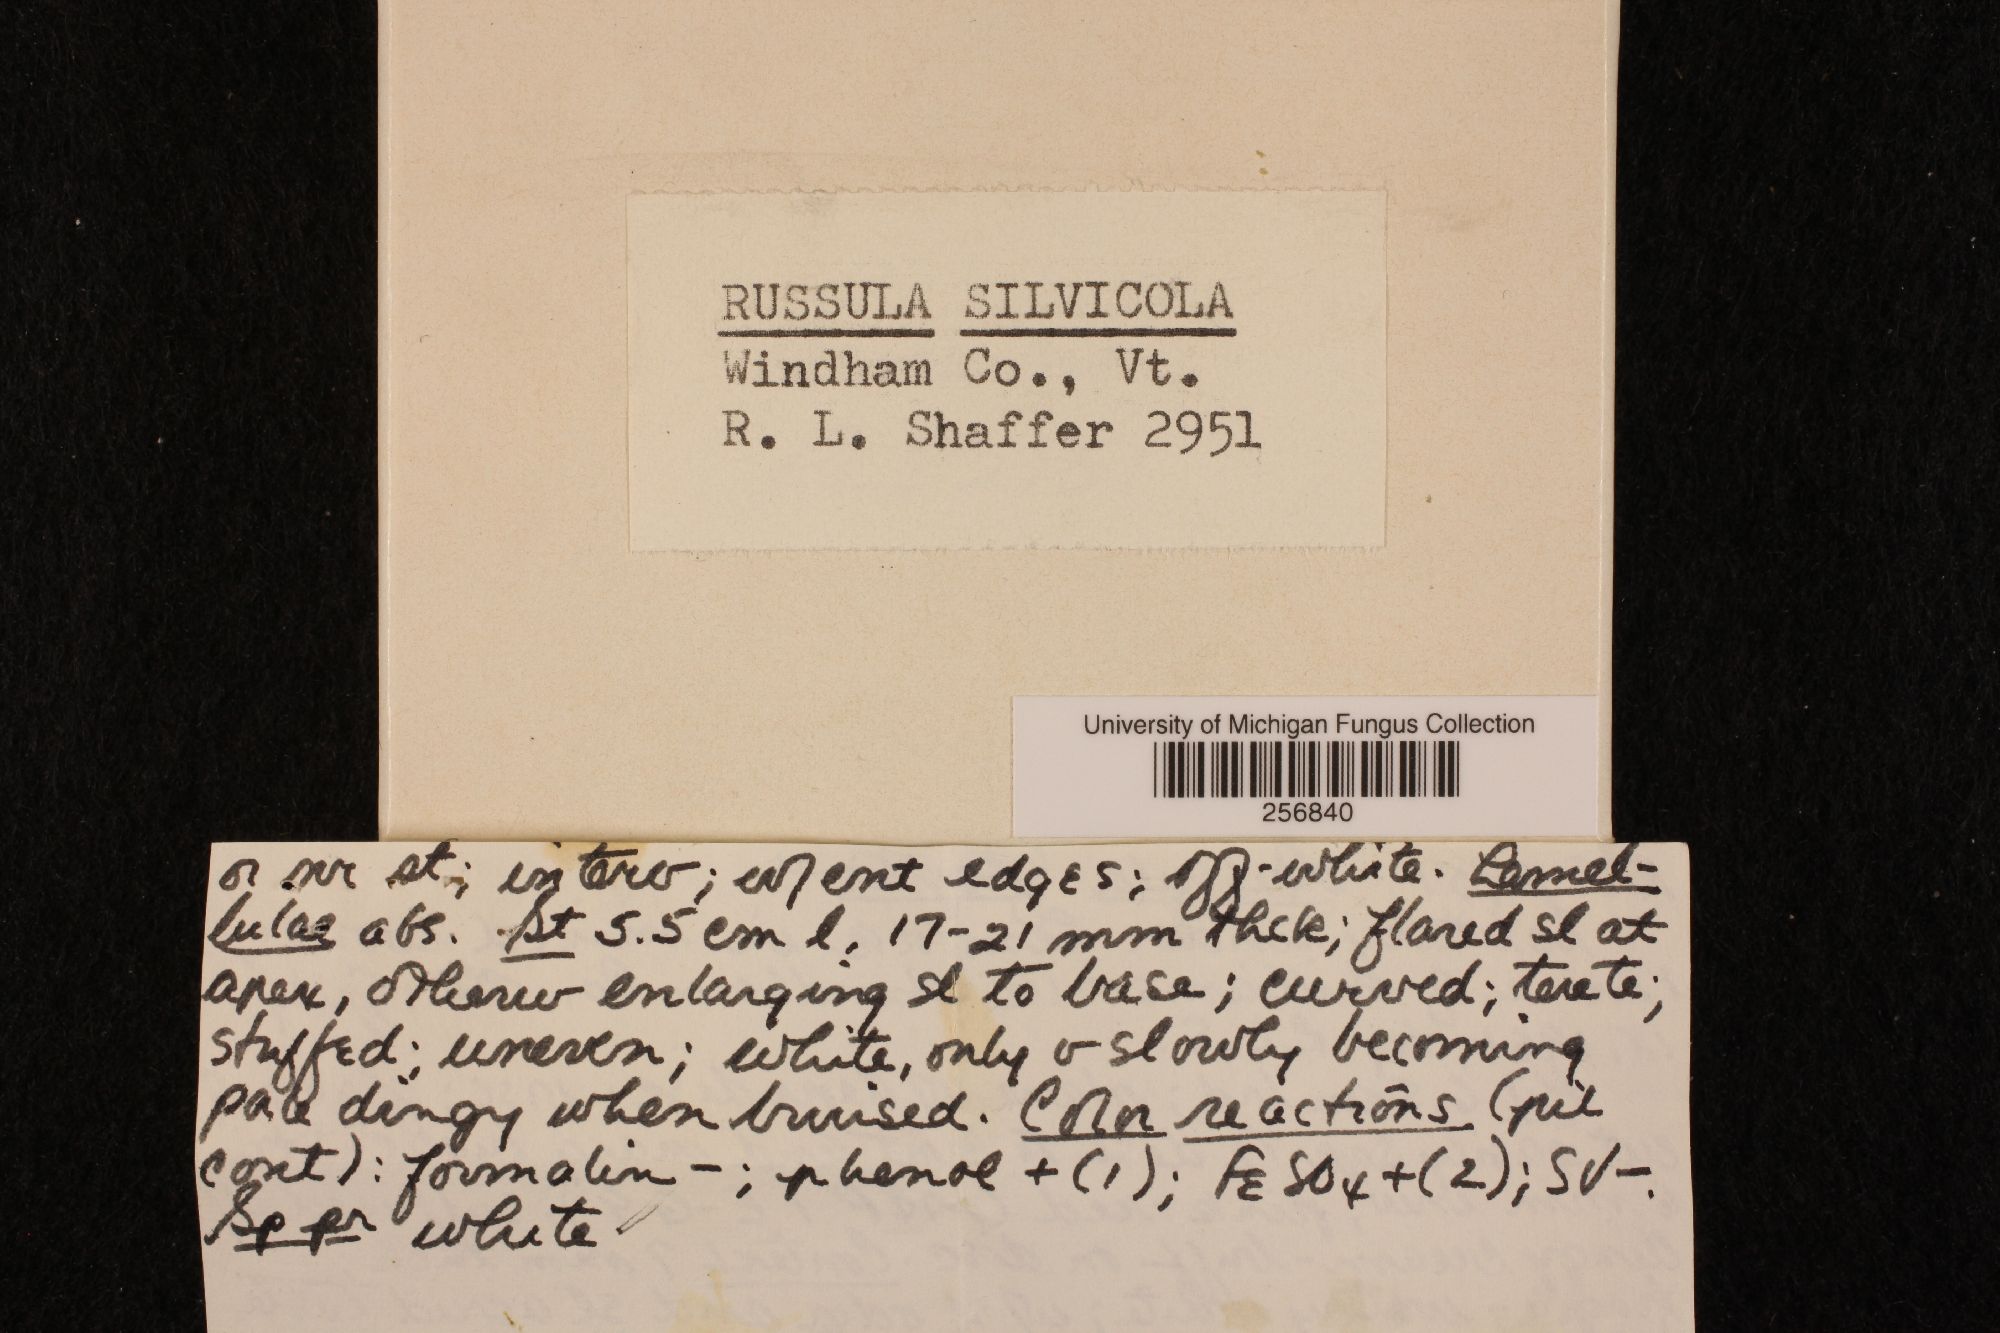 RUSSULA SILVICOLA
Windham Co., Vt.
R. L. Shaffer 2951
University of Michigan Fungus Collection
256840
or nr st; interv; w/ent edges; off-white. Lamel-
lulae abs. St 5.5 cm l, 17-21 mm thck; flared sl at
apex, otherw enlarging sl to base; curved; terete;
stuffed; uneven; white, only v slowly becoming
pale dingy when bruised. Color reactions (pil
cont): formalin -; phenol + (1); FeSO4 + (2); SV-.
Sp pr white